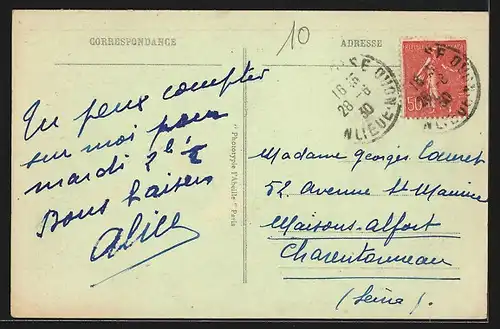 CORRESPONDANCE
10
Tu peux compter
sur moi pour
mardi 2h
Bons baisers
Alice
"Phototypie l'Abeille" Paris
ADRESSE
16
28 - 6
30
50
Madame Georges Lauret
52 Avenue St Maurice
Maisons-Alfort
Charentonneau
(Seine)